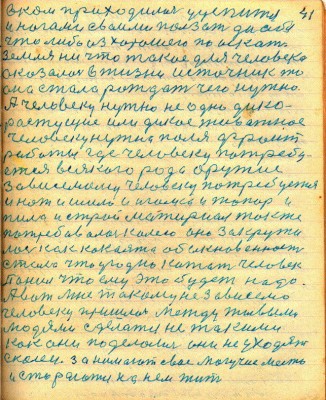 41
вком приходилося цепится
и ногами своими ползат да себе
что либо из хорошего поискат.
Земля ни что такое для человека
оказалося в жизни источник то
она стала рождат чего нужно.
А человеку нужно не одно дико-
растущие или дикое животное
человеку нужна поля фронт
работы где человеку потребу-
ется всякого рода оружие
Зависемому человеку потребуется
и нож и шило и иголка и топор и
пила и строй материал также
потребавалося колесо оно закружи
лося как какаято обыкновенность
стало что угодно катат человек
Понял что ему это будет надо.
А вот мне такому не зависемо
человеку пришлося между такими
людями сделатся не такими
как они поделалися они не уходят
с колеи. занимают свае могучие место
и стараются на нем жит